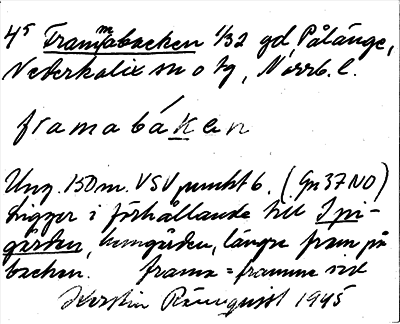 4⁵ Frammabacken 1/32 gd, Pålänge,
Nederkalix sn o tg, Norrb. l.
framabáken
Ung. 150 m. VSV punkt 6. (Gn 37 NO)
Ligger i förhållande till Ipi-
gården, hemgården, längre fram på
backen. frama = framme vid
Kerstin 1945